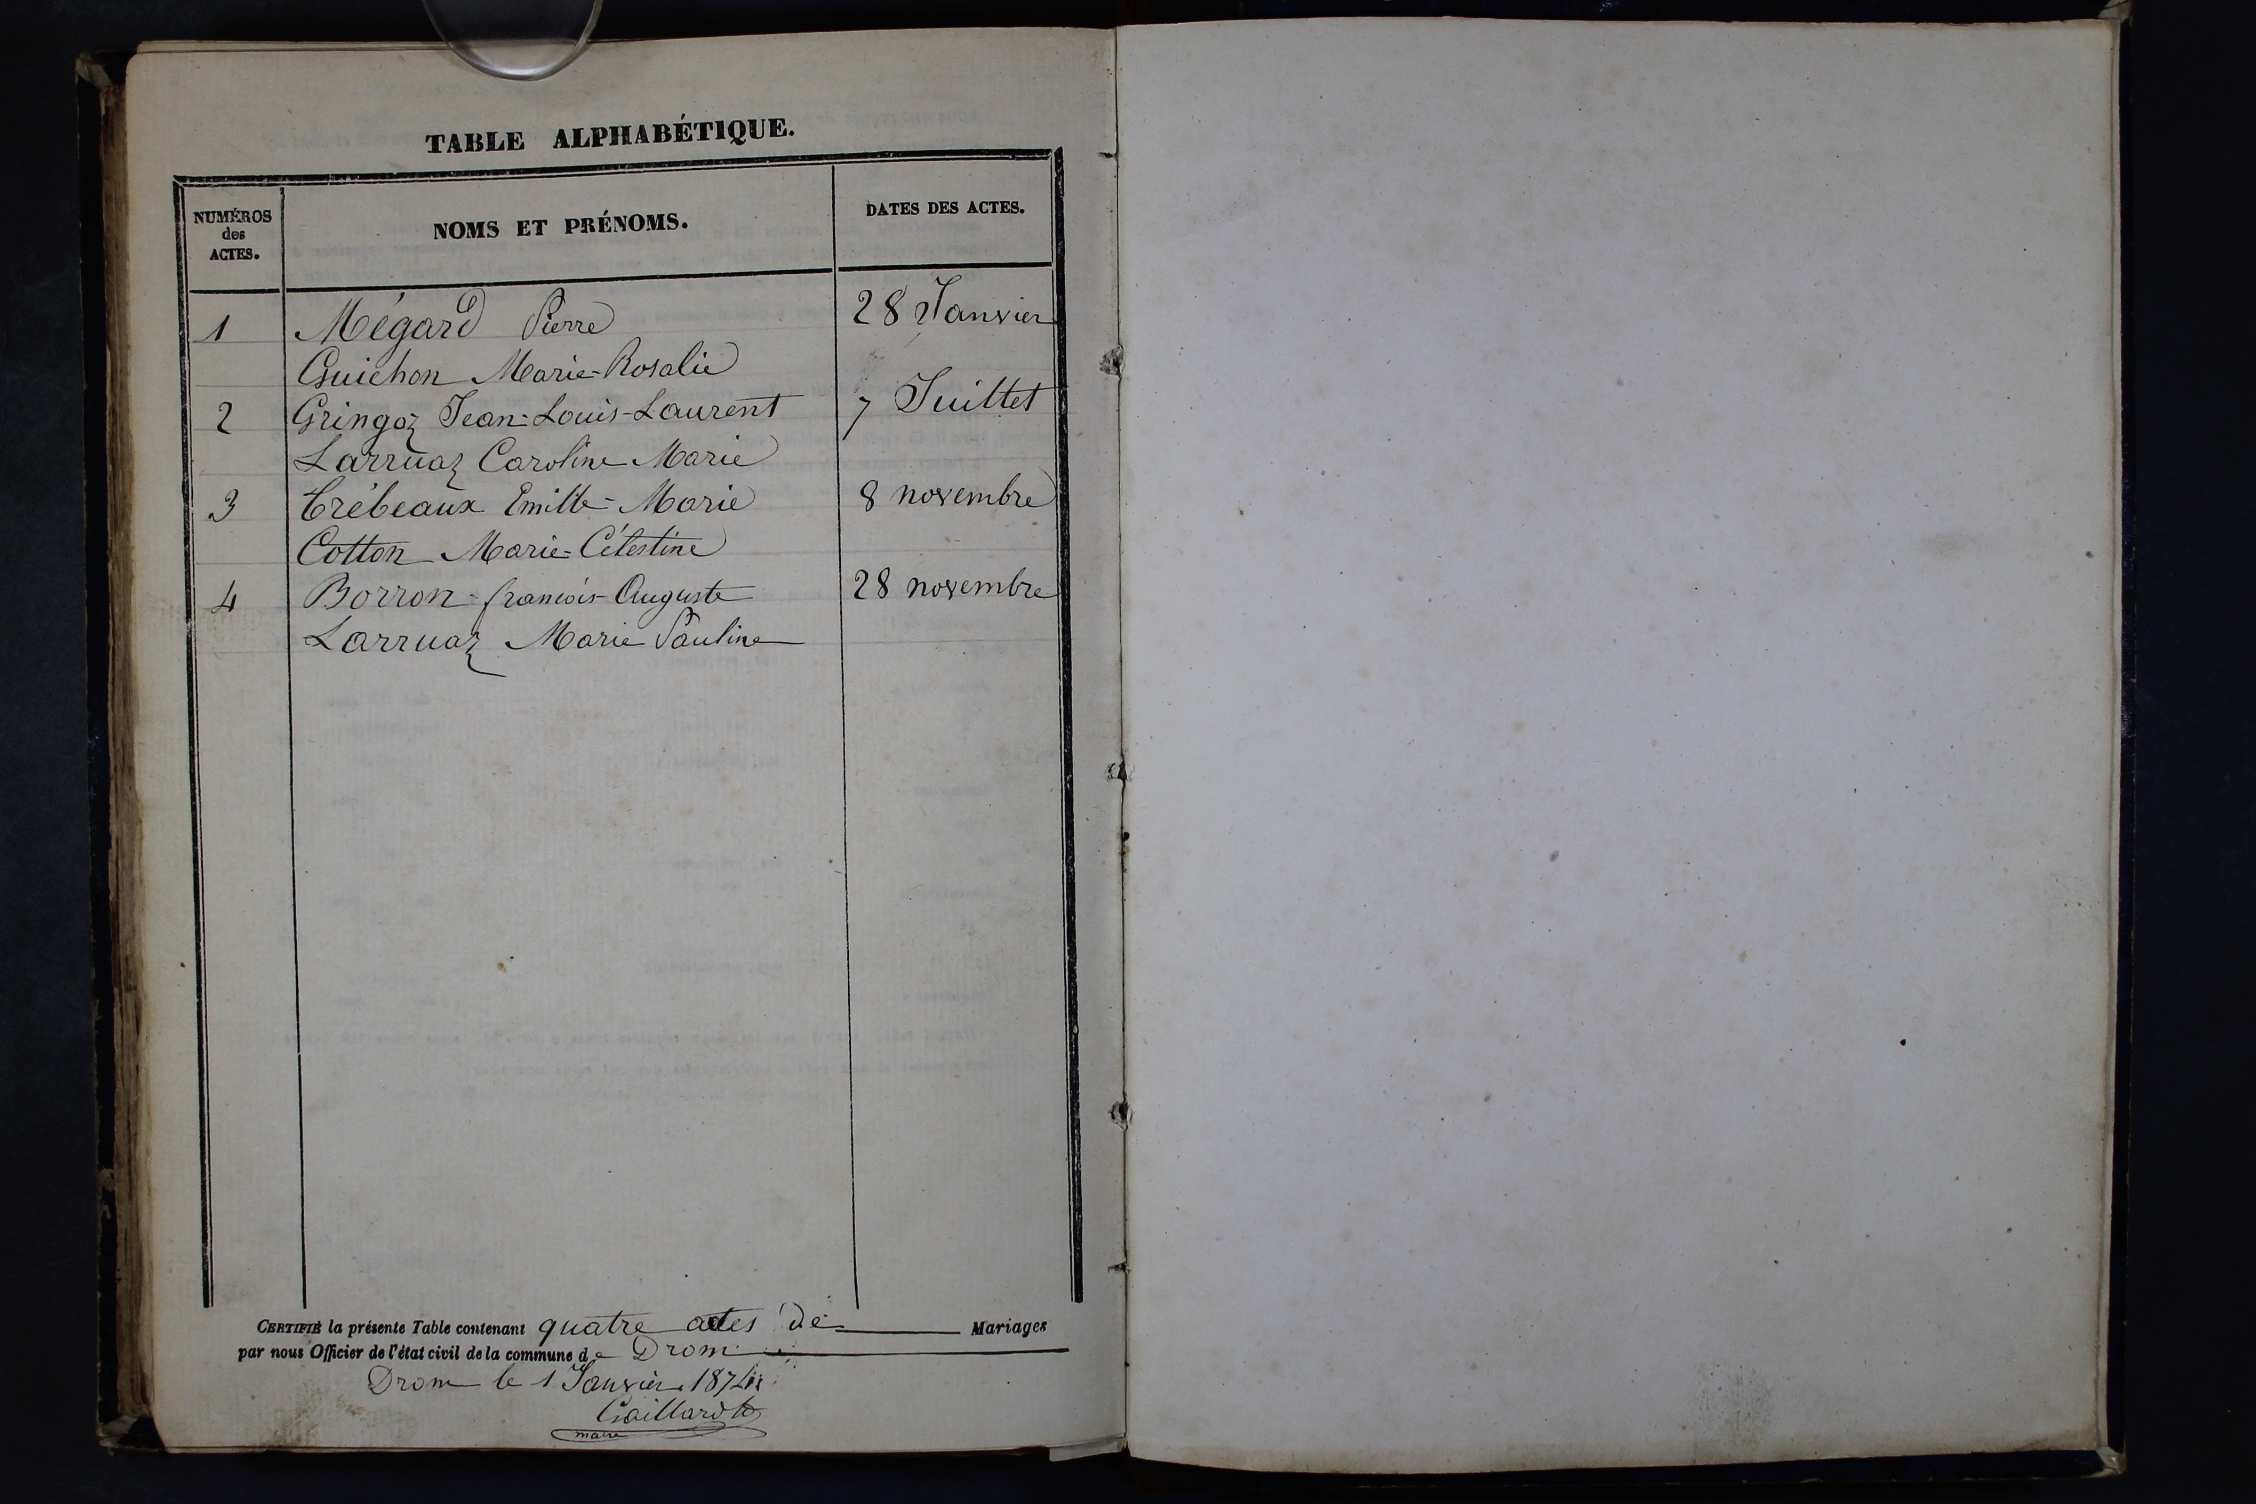 TABLE ALPHABÉTIQUE.
NUMÉROS
des
ACTES.
NOMS ET PRÉNOMS.
DATES DES ACTES.
1 Mégard Pierre 28 Janvier
Guichon Marie-Rosalie
2 Gringoz Jean-Louis-Laurent 7 Juillet
Larruaz Caroline Marie
3 Trébeaux Emille-Marie 8 novembre
Cotton Marie-Célestine
4 Borron-francois-Auguste 28 novembre
Larruaz Marie Pauline
CERTIFIÉ la présente Table contenant quatre actes de Mariages
par nous Officier de l'état civil de la commune de Drom
Drom le 1 Janvier 1874
Gaillard
maire